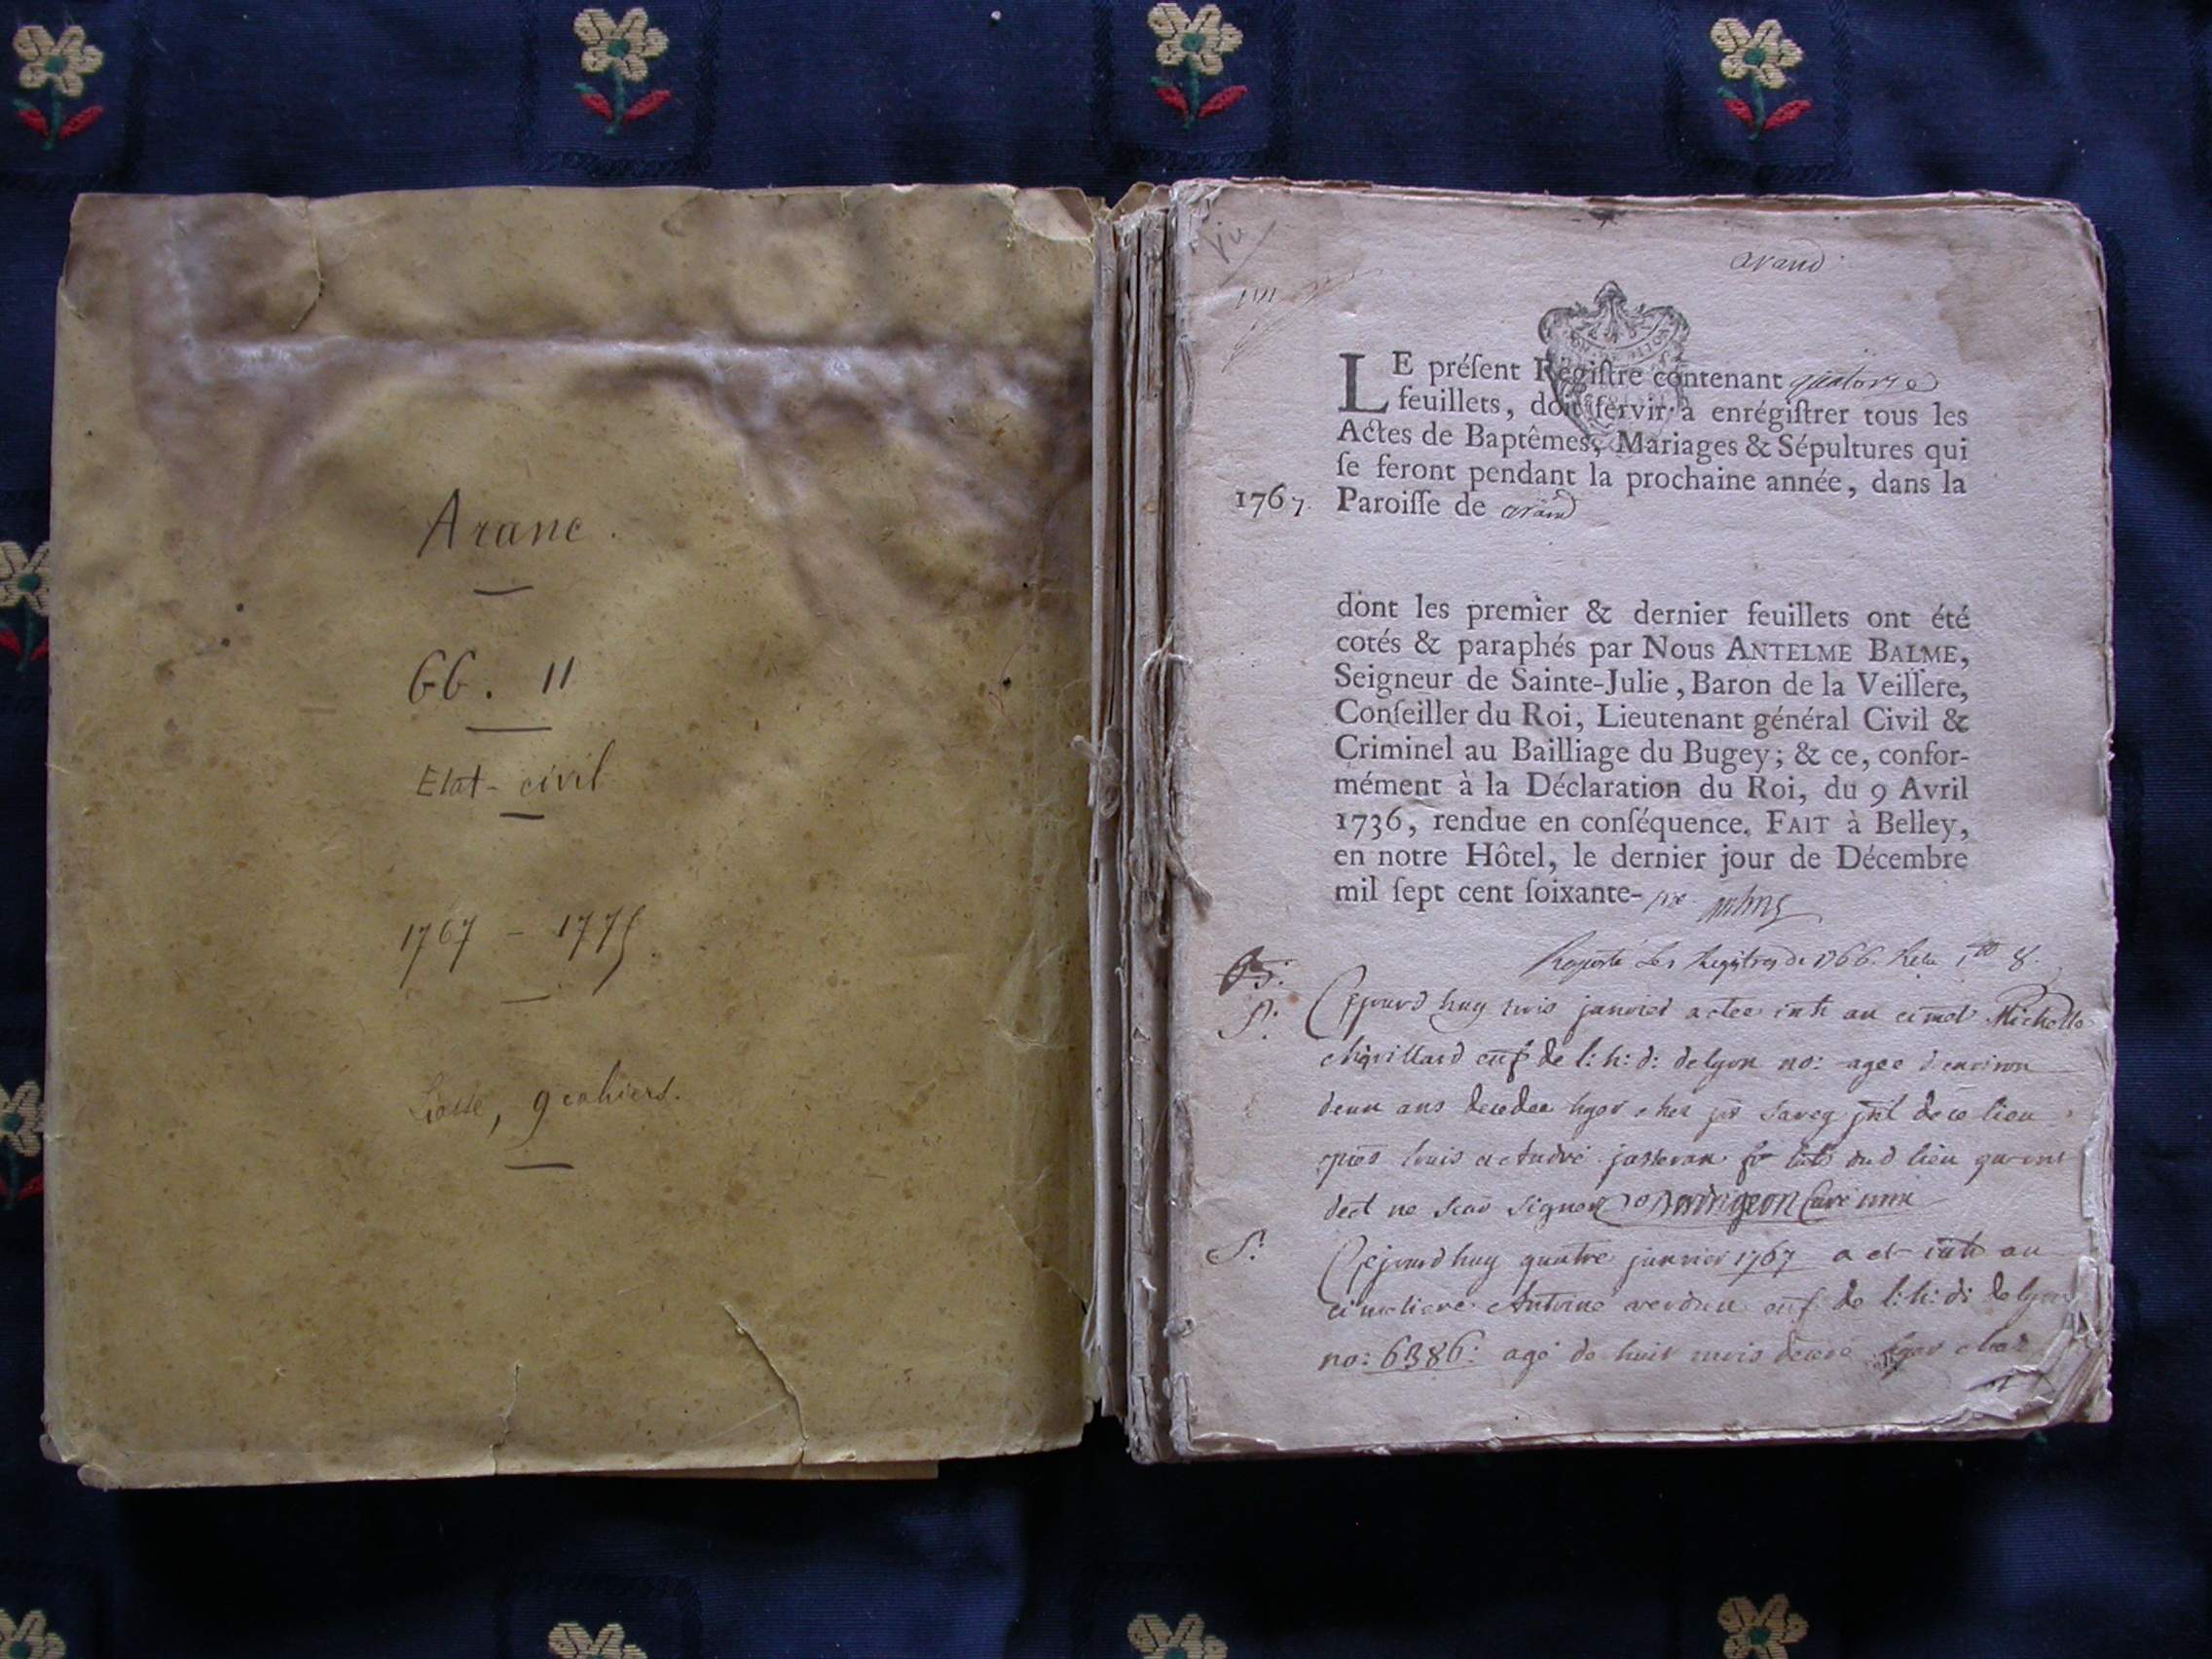 Aranc.
GG. 11
Etat-civil
1767 - 1775.
Liasse, 9 cahiers.
arand
LE préſent Régiſtre contenant quatorze
feuillets, doit ſervir à enrégiſtrer tous les
Actes de Baptêmes, Mariages & Sépultures qui
ſe feront pendant la prochaine année, dans la
1767. Paroiſſe de arand
dont les premier & dernier feuillets ont été
cotés & paraphés par Nous ANTELME BALME,
Seigneur de Sainte-Julie, Baron de la Veillere,
Conſeiller du Roi, Lieutenant général Civil &
Criminel au Bailliage du Bugey; & ce, confor-
mément à la Déclaration du Roi, du 9 Avril
1736, rendue en conſéquence. FAIT à Belley,
en notre Hôtel, le dernier jour de Décembre
mil ſept cent ſoixante-
Les Registres de 1766.
S. Cejourd huy trois janvier a etee inh au cimet Michelle
enf de l: h: d: de lyon no: agee d environ
deux ans decedee hyer chez de ce lieu
louis et André dud lieu qui ont
de ne scav signer Curé
S. Cejourd huy quatre janvier 1767 a et inh au
cimetiere Antoine verdun enf de l: h: d: de lyon
no: 6386: agé de huit mois hyer chez